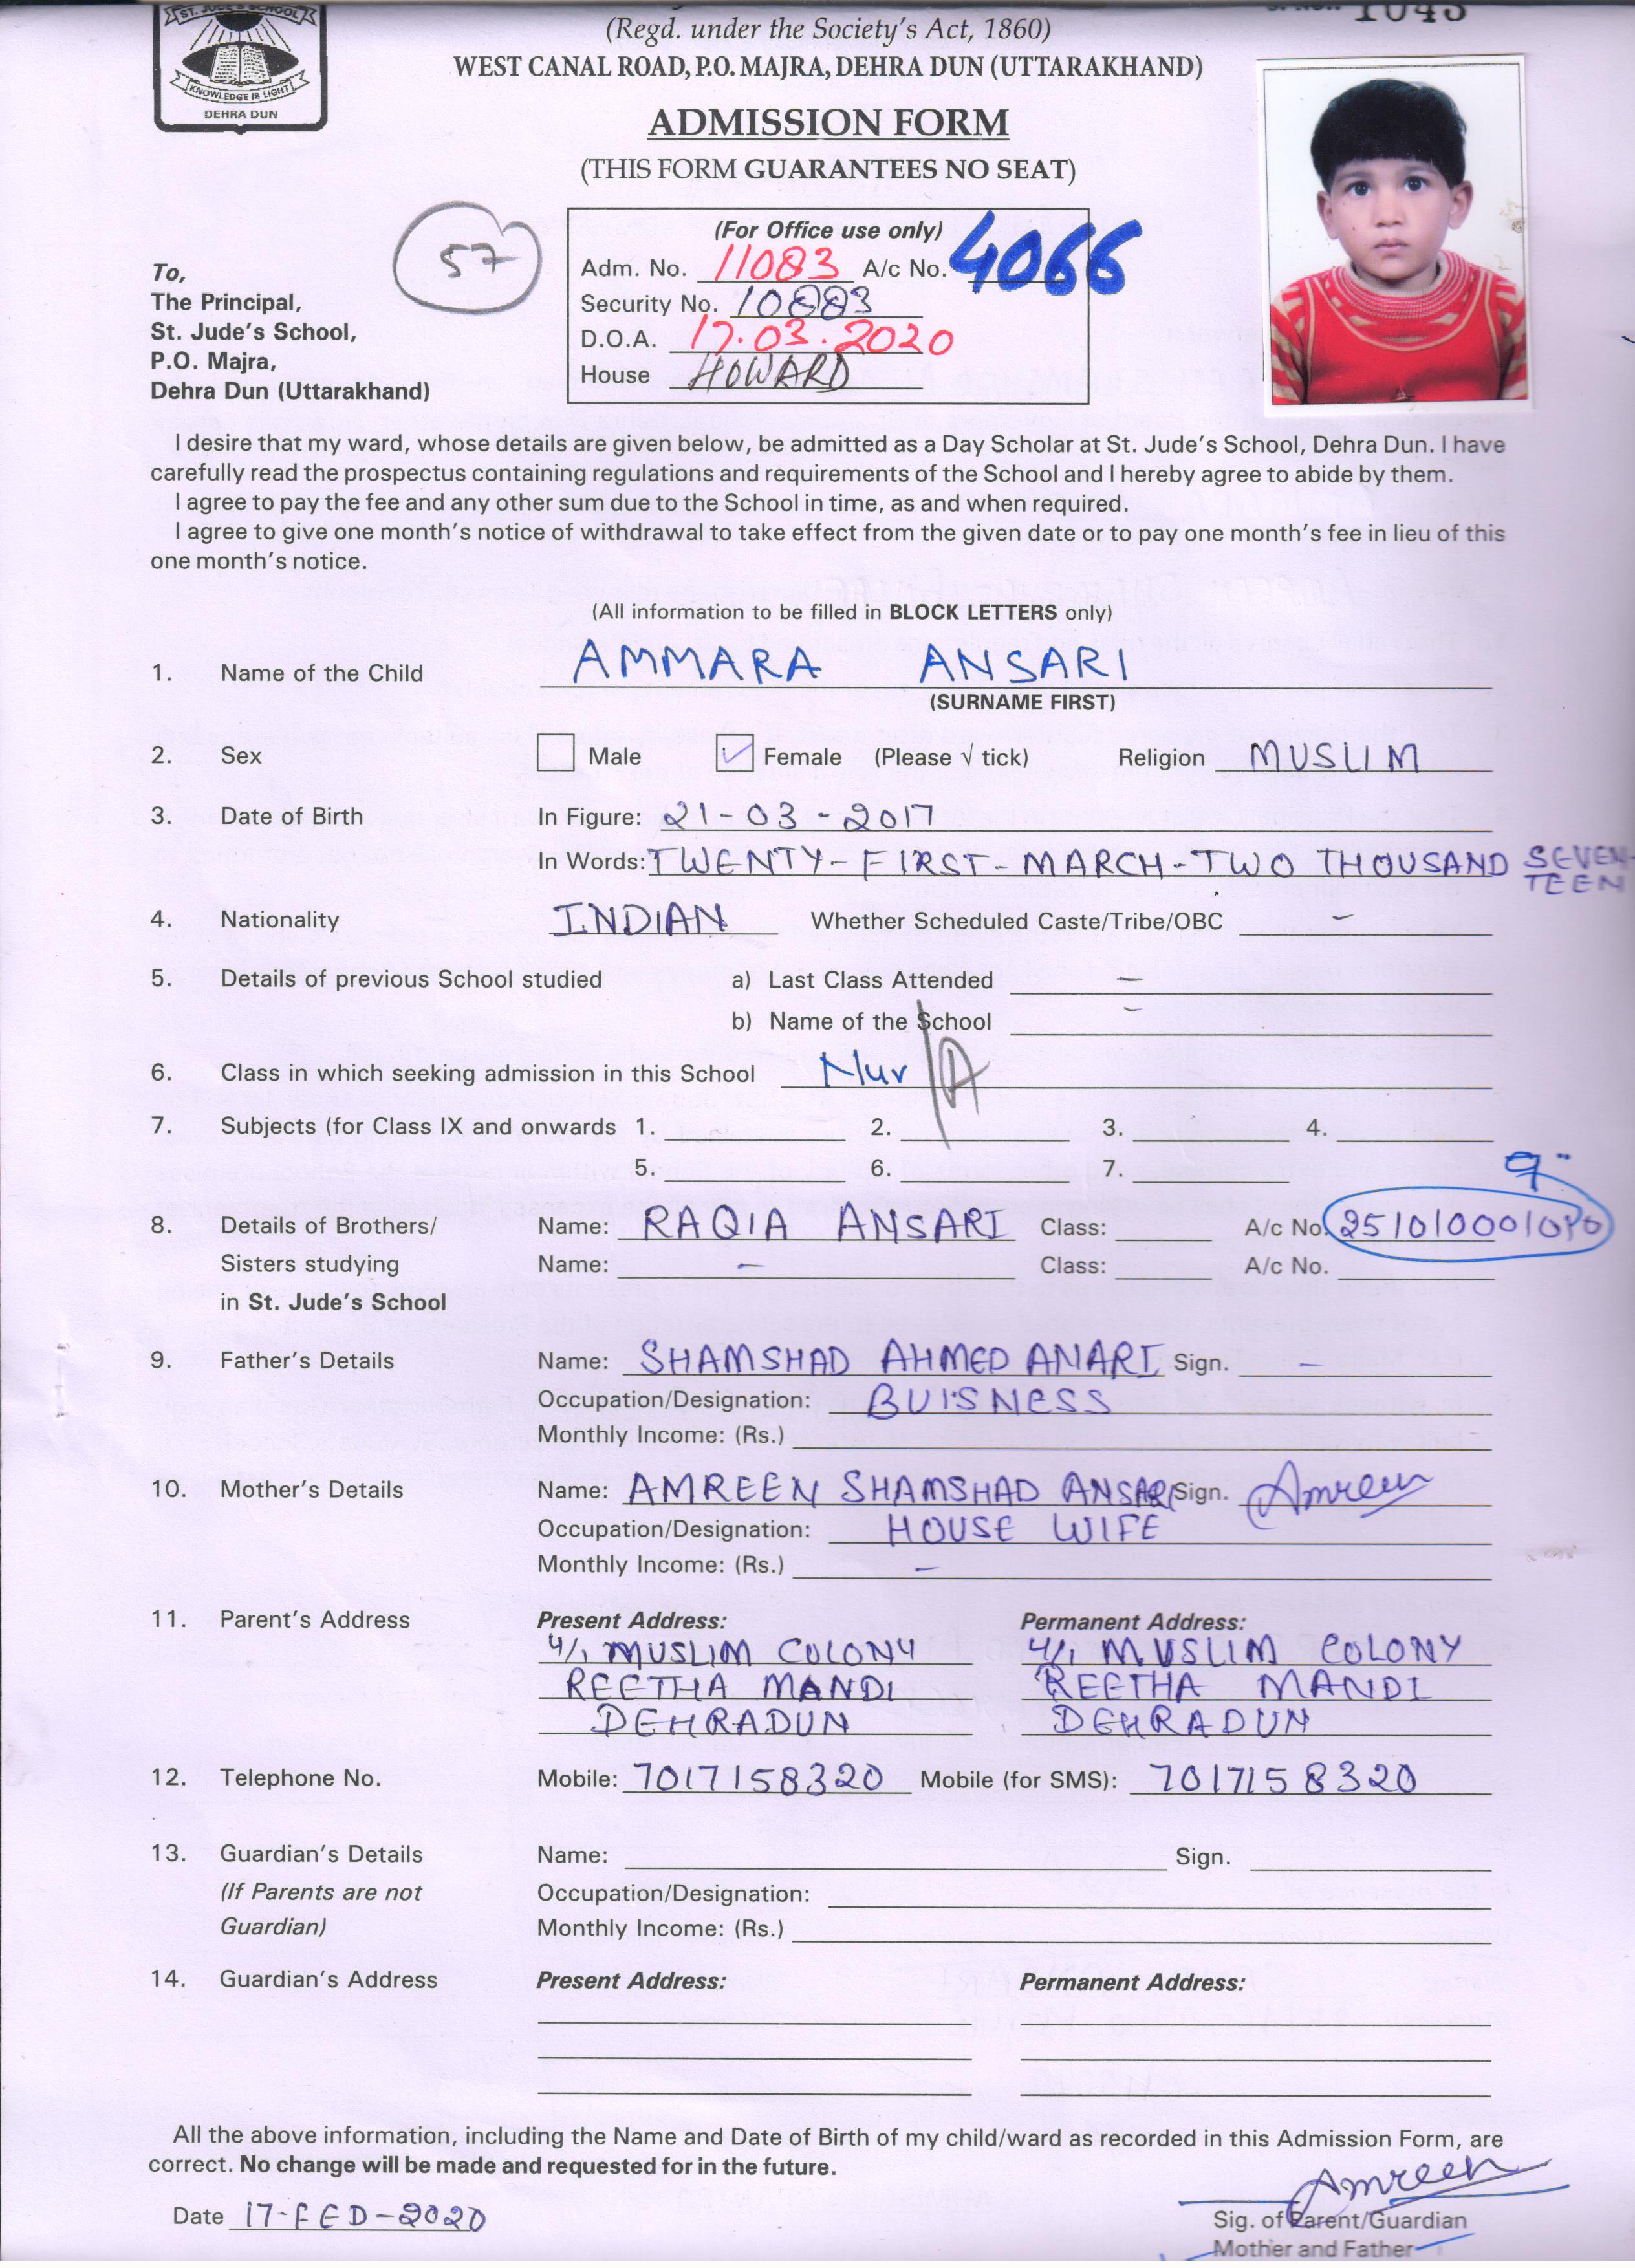 ST. JUDE'S SCHOOL
KNOWLEDGE IS LIGHT
DEHRA DUN
1043
(Regd. under the Society's Act, 1860)
WEST CANAL ROAD, P.O. MAJRA, DEHRA DUN (UTTARAKHAND)
ADMISSION FORM
(THIS FORM GUARANTEES NO SEAT)
57
(For Office use only)
Adm. No. 11083 A/c No. 4066
Security No. 10883
D.O.A. 17.03.2020
House HOWARD
To,
The Principal,
St. Jude's School,
P.O. Majra,
Dehra Dun (Uttarakhand)
I desire that my ward, whose details are given below, be admitted as a Day Scholar at St. Jude's School, Dehra Dun. I have
carefully read the prospectus containing regulations and requirements of the School and I hereby agree to abide by them.
I agree to pay the fee and any other sum due to the School in time, as and when required.
I agree to give one month's notice of withdrawal to take effect from the given date or to pay one month's fee in lieu of this
one month's notice.
(All information to be filled in BLOCK LETTERS only)
1. Name of the Child AMMARA ANSARI
(SURNAME FIRST)
2. Sex Male Female (Please √ tick) Religion MUSLIM
3. Date of Birth In Figure: 21-03-2017
In Words: TWENTY-FIRST-MARCH-TWO THOUSAND SEVEN-
TEEN
4. Nationality INDIAN Whether Scheduled Caste/Tribe/OBC -
5. Details of previous School studied a) Last Class Attended -
b) Name of the School -
6. Class in which seeking admission in this School Nur/A
7. Subjects (for Class IX and onwards 1. 2. 3. 4.
5. 6. 7.
8. Details of Brothers/ Name: RAQIA ANSARI Class: A/c No.
Sisters studying Name: - Class: A/c No.
in St. Jude's School
9. Father's Details Name: SHAMSHAD AHMED ANARI Sign. -
Occupation/Designation: BUISNESS
Monthly Income: (Rs.)
10. Mother's Details Name: AMREEN SHAMSHAD ANSARI Sign. Amreen
Occupation/Designation: HOUSE WIFE
Monthly Income: (Rs.) -
11. Parent's Address Present Address: Permanent Address:
4/1 MUSLIM COLONY 4/1 MUSLIM COLONY
REETHA MANDI REETHA MANDI
DEHRADUN DEHRADUN
12. Telephone No. Mobile: 7017158320 Mobile (for SMS): 7017158320
13. Guardian's Details Name: Sign.
(If Parents are not Occupation/Designation:
Guardian) Monthly Income: (Rs.)
14. Guardian's Address Present Address: Permanent Address:
All the above information, including the Name and Date of Birth of my child/ward as recorded in this Admission Form, are
correct. No change will be made and requested for in the future.
Amreen
Date 17-FED-2020 Sig. of Parent/Guardian
Mother and Father